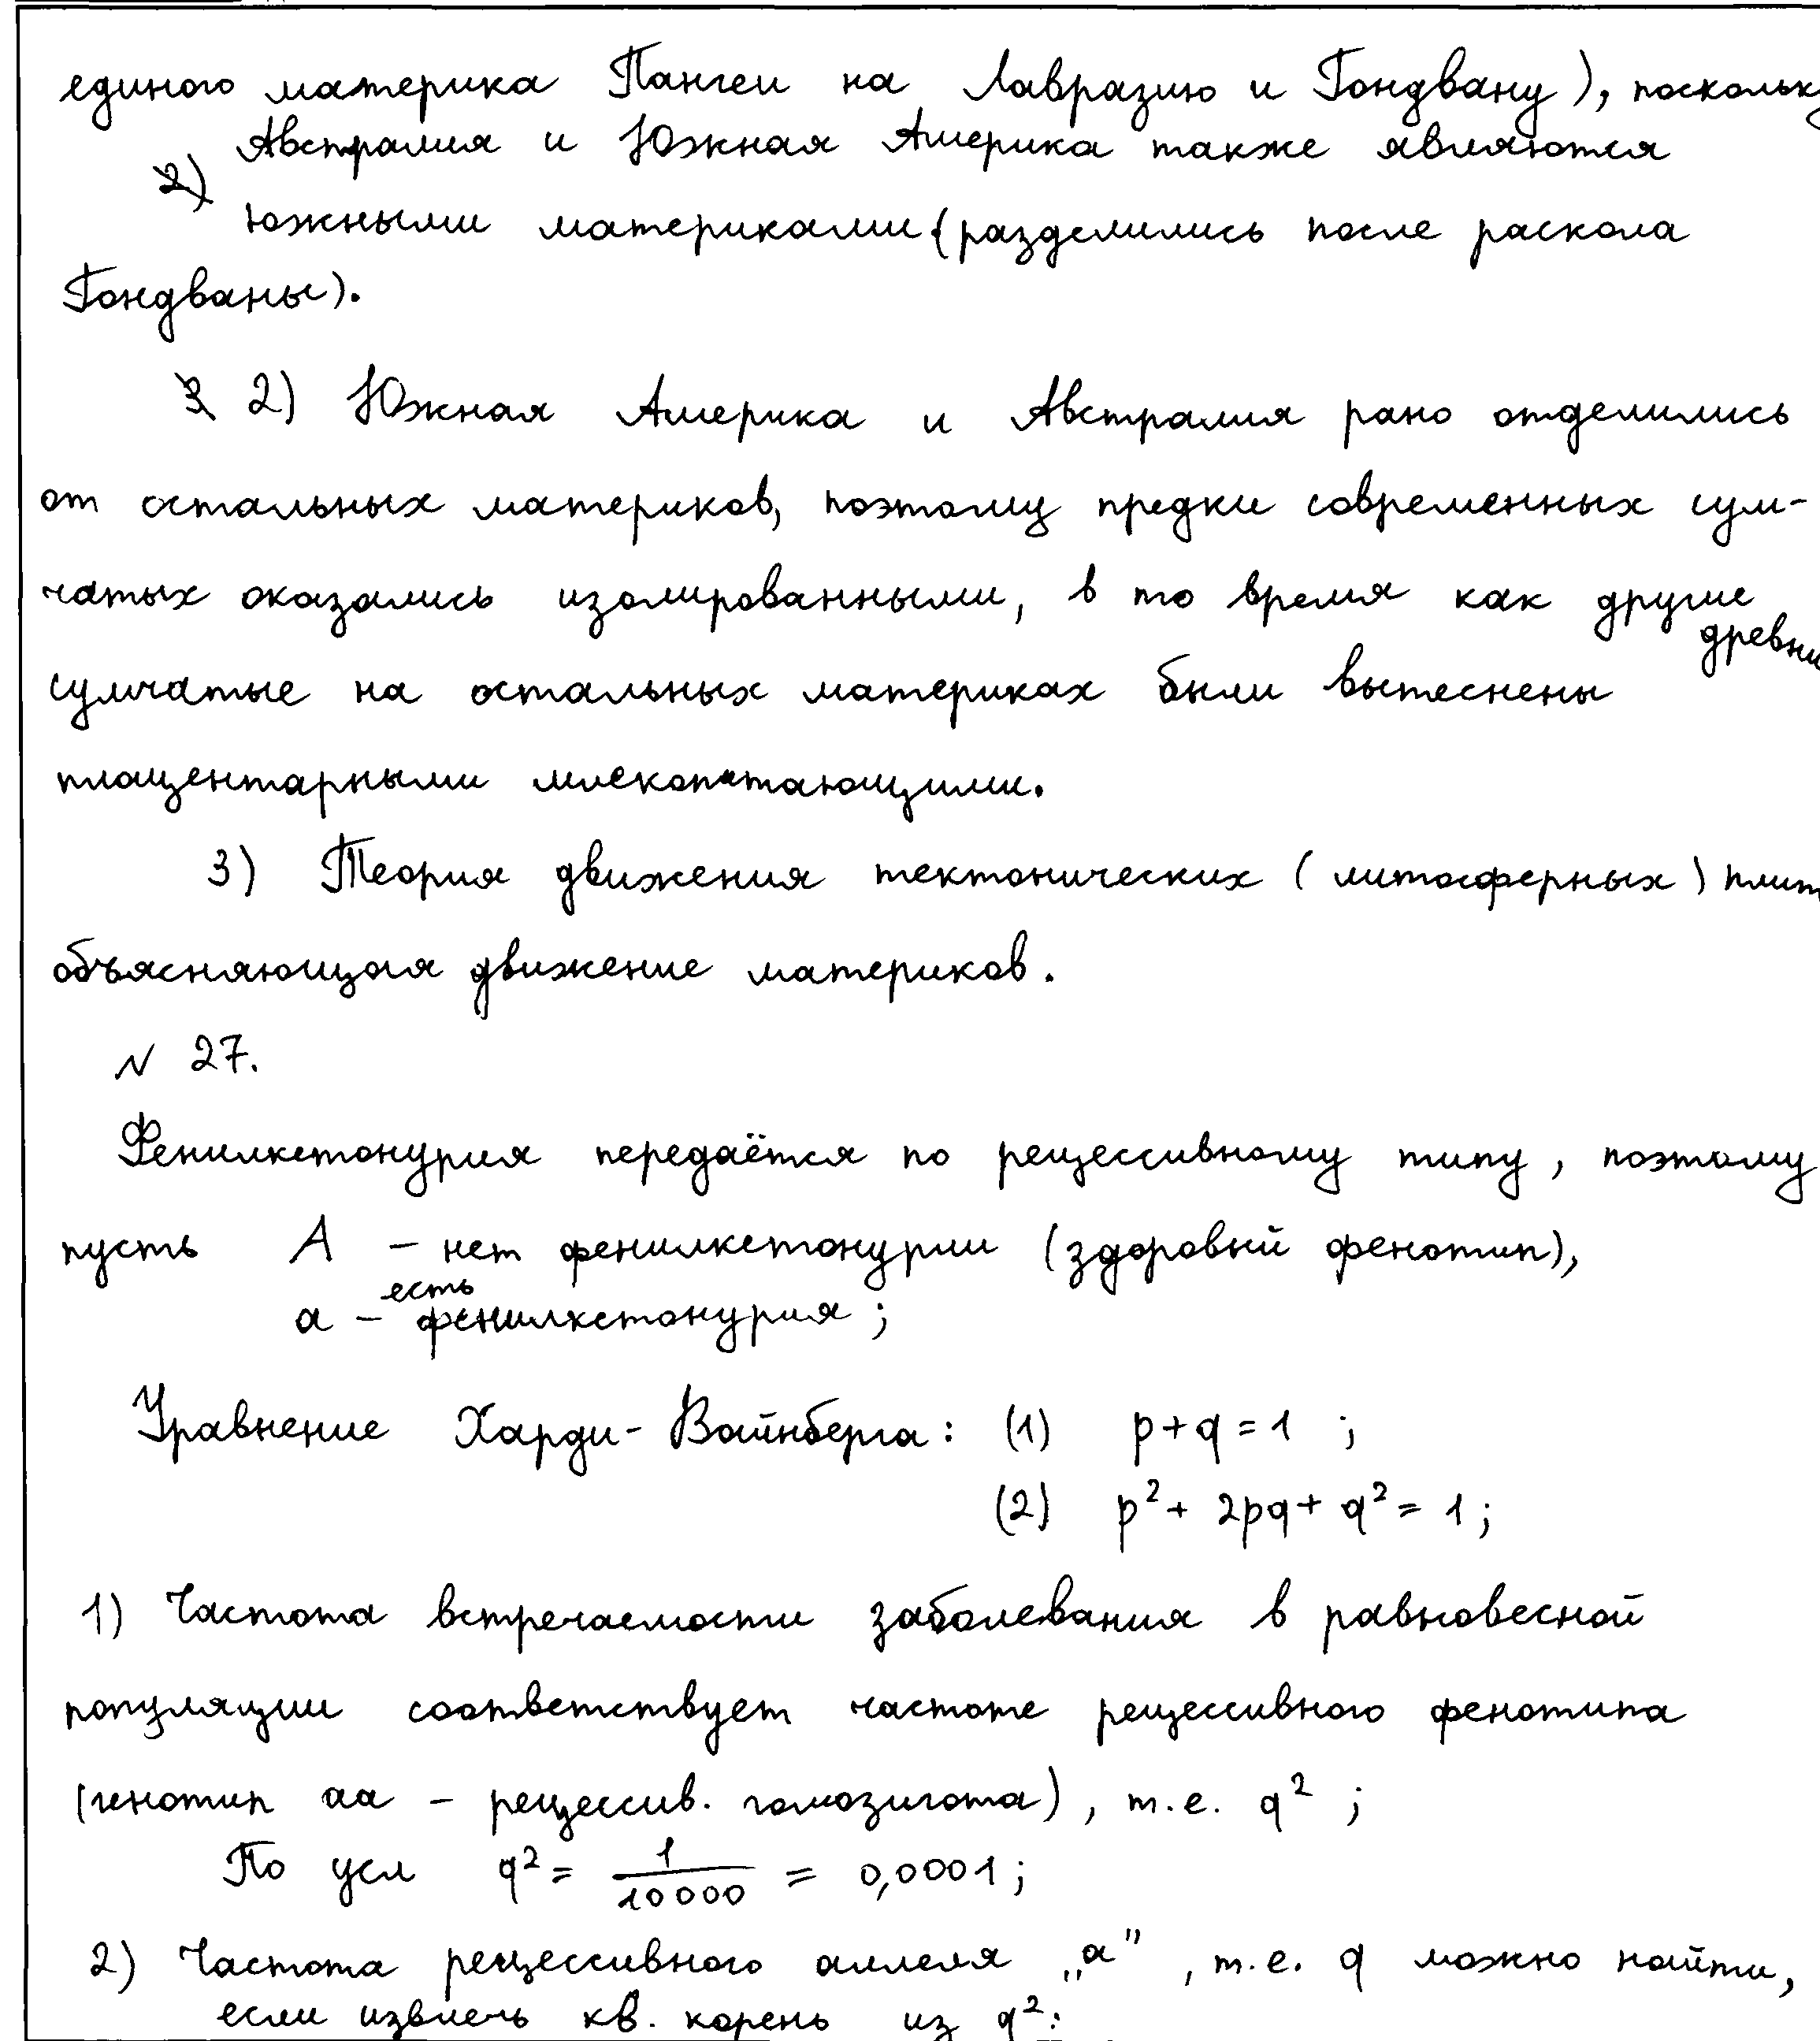 единого материка Пангеи на Лавразию и Гондвану), поскольку
Австралия и Южная Америка также являются
2)
южными материками (разделились после раскола
Гондваны).
3 2) Южная Америка и Австралия рано отделились
от остальных материков, поэтому предки современных сум-
чатых оказались изолированными, в то время как другие
древни
сумчатые на остальных материках были вытеснены
плацентарными млекопитающими.
3) Теория движения тектонических (литосферных) плит
объясняющая движение материков.
N 27.
Фенилкетонурия передаётся по рецессивному типу, поэтому
пусть А – нет фенилкетонурии (здоровый фенотип),
есть
а – фенилкетонурия;
Уравнение Харди-Вайнберга: (1) p+q=1 ;
(2) p²+ 2pq+ q²= 1;
1) Частота встречаемости заболевания в равновесной
популяции соответствует частоте рецессивного фенотипа
(генотип аа – рецессив. гомозигота), т.е. q² ;
По усл q²= 1/10000 = 0,0001;
2) Частота рецессивного аллеля „а", т.е. q можно найти,
если извлечь кв. корень из q²: